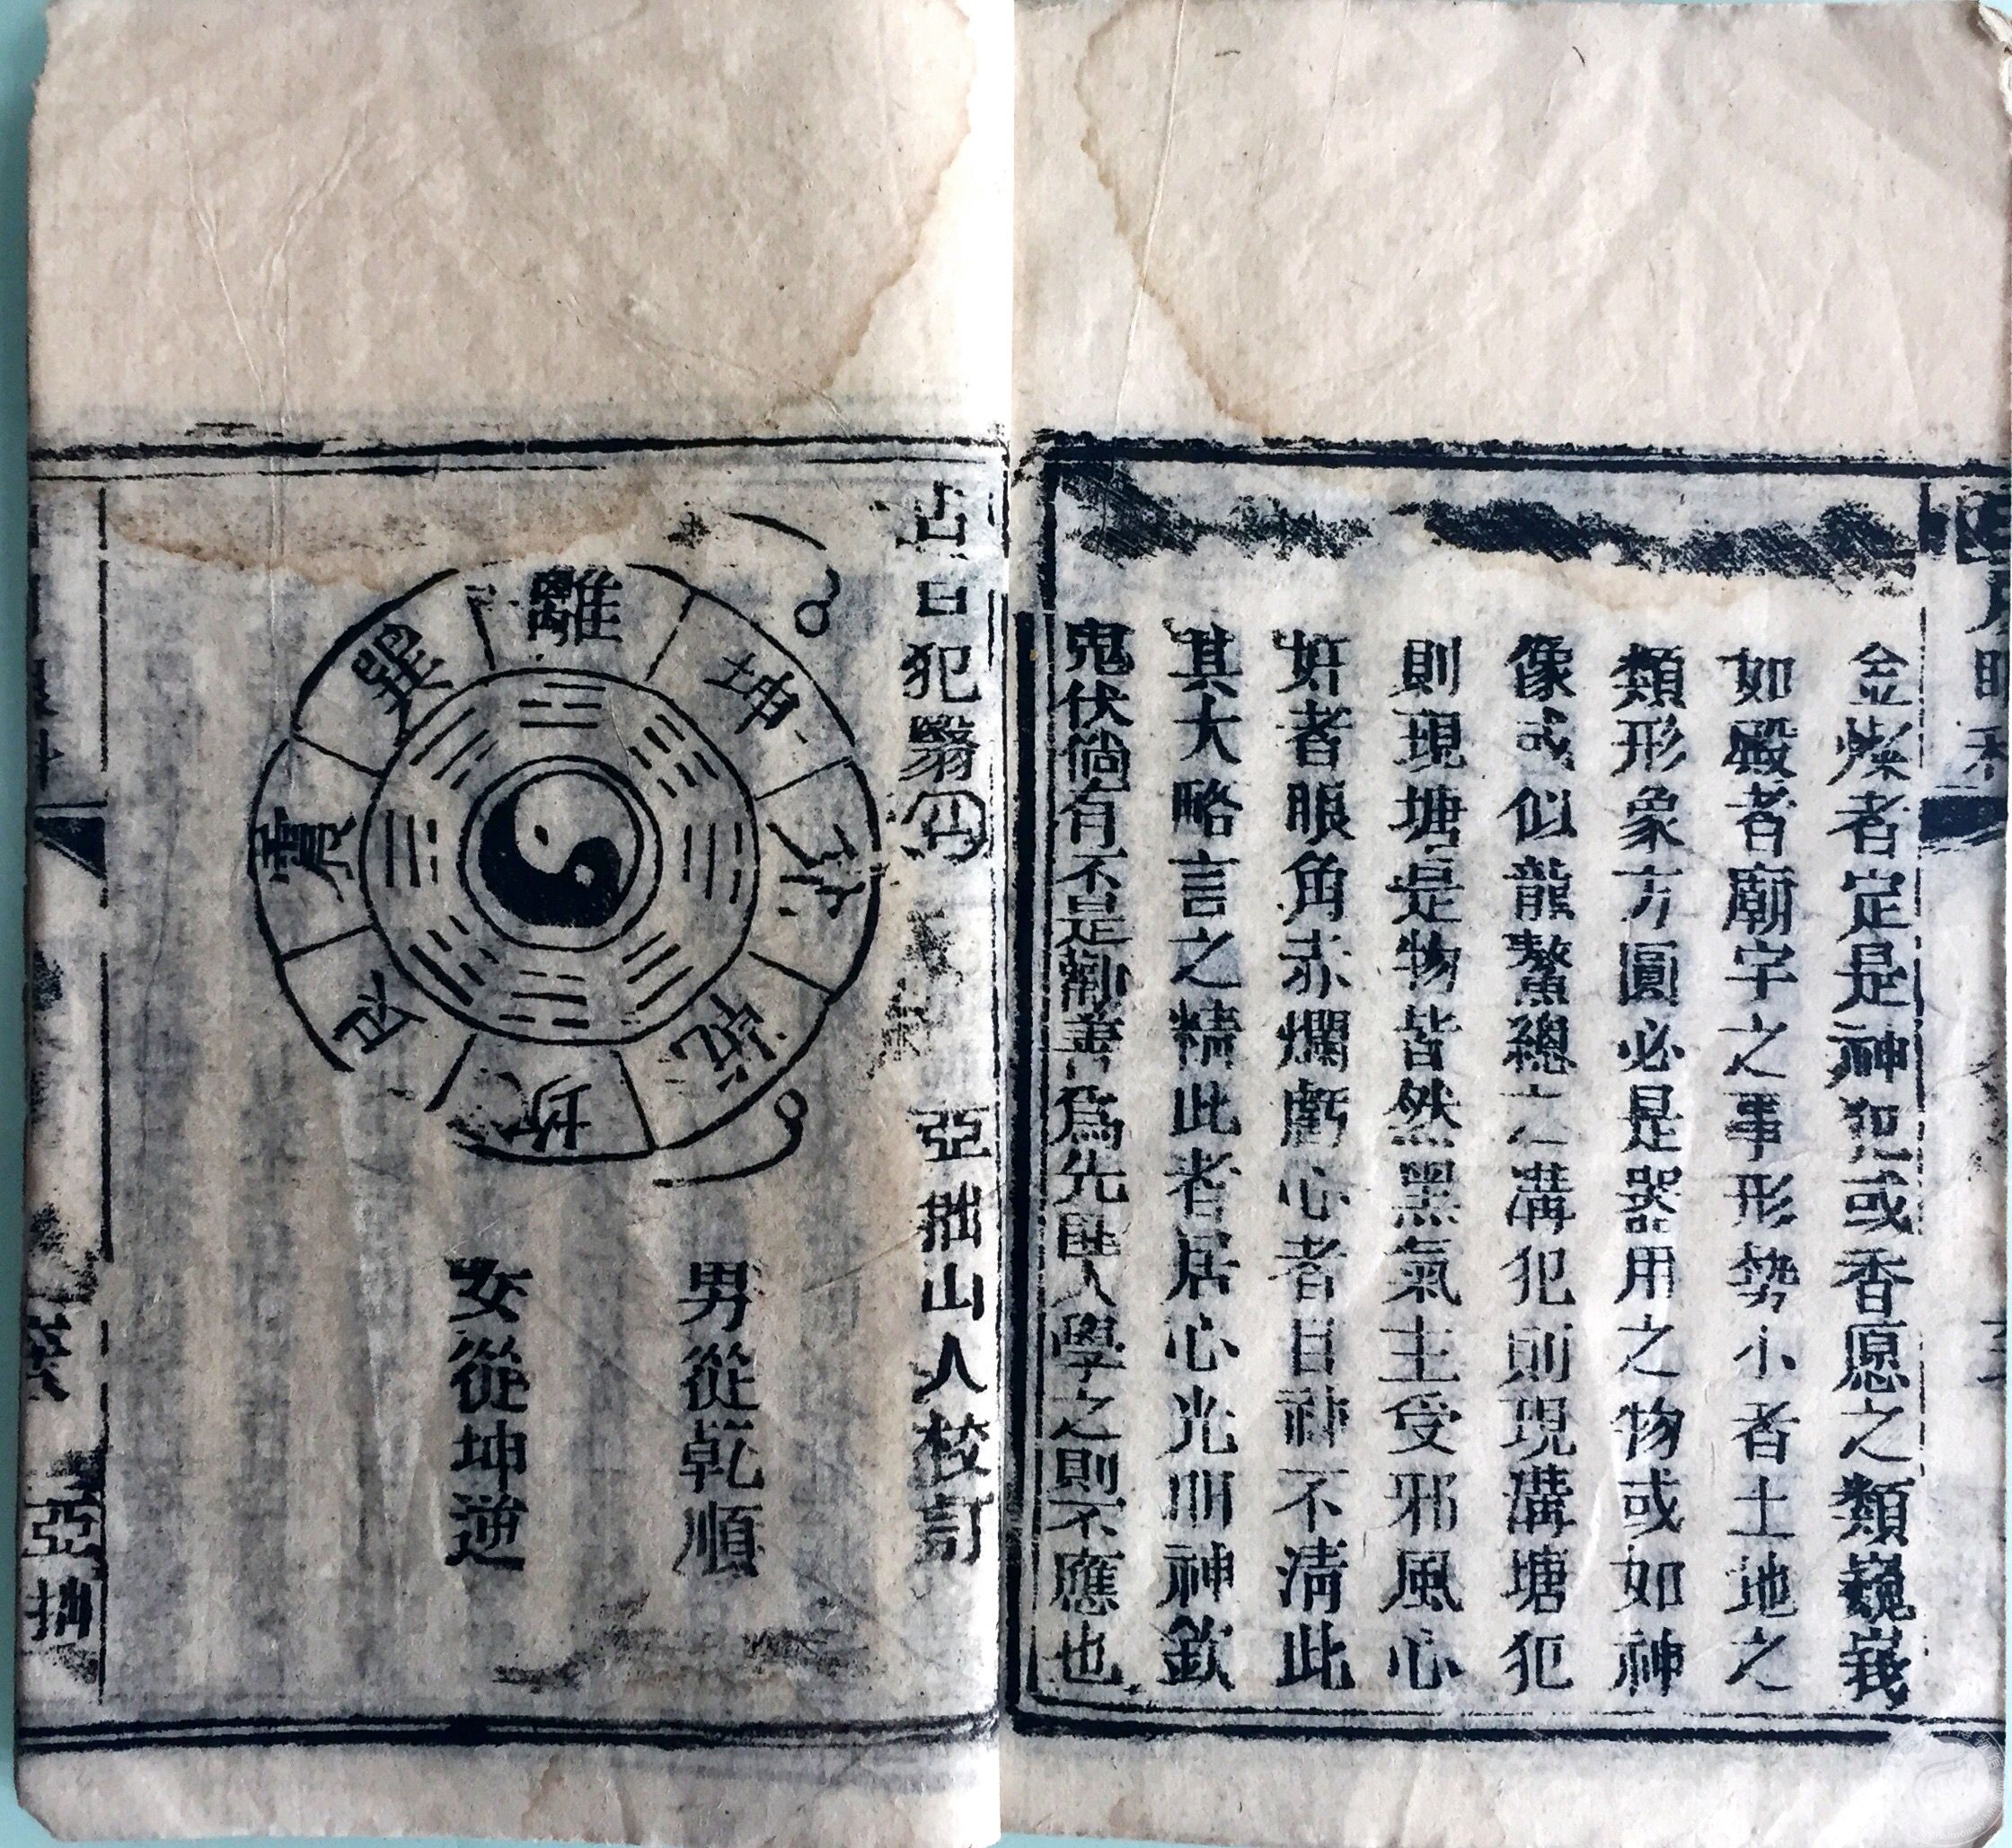 金燦者定是神犯或香愿之類巍峩
如殿者廟宇之事形勢小者土地之
類形象方圓必是器用之物或如神
像或似龍鰲總之溝犯則現溝塘犯
則現塘是物皆然黑氣主受邪風心
奸者眼角赤爛虧心者目神不清此
其大略言之精此者居心光明神欽
鬼伏倘有不是勸善為先匪人學之則不應也
占日犯翳
亞拙山人校訂
離
坤
兌
乾
坎
艮
震
巽
男從乾順
女從坤逆
亞拙